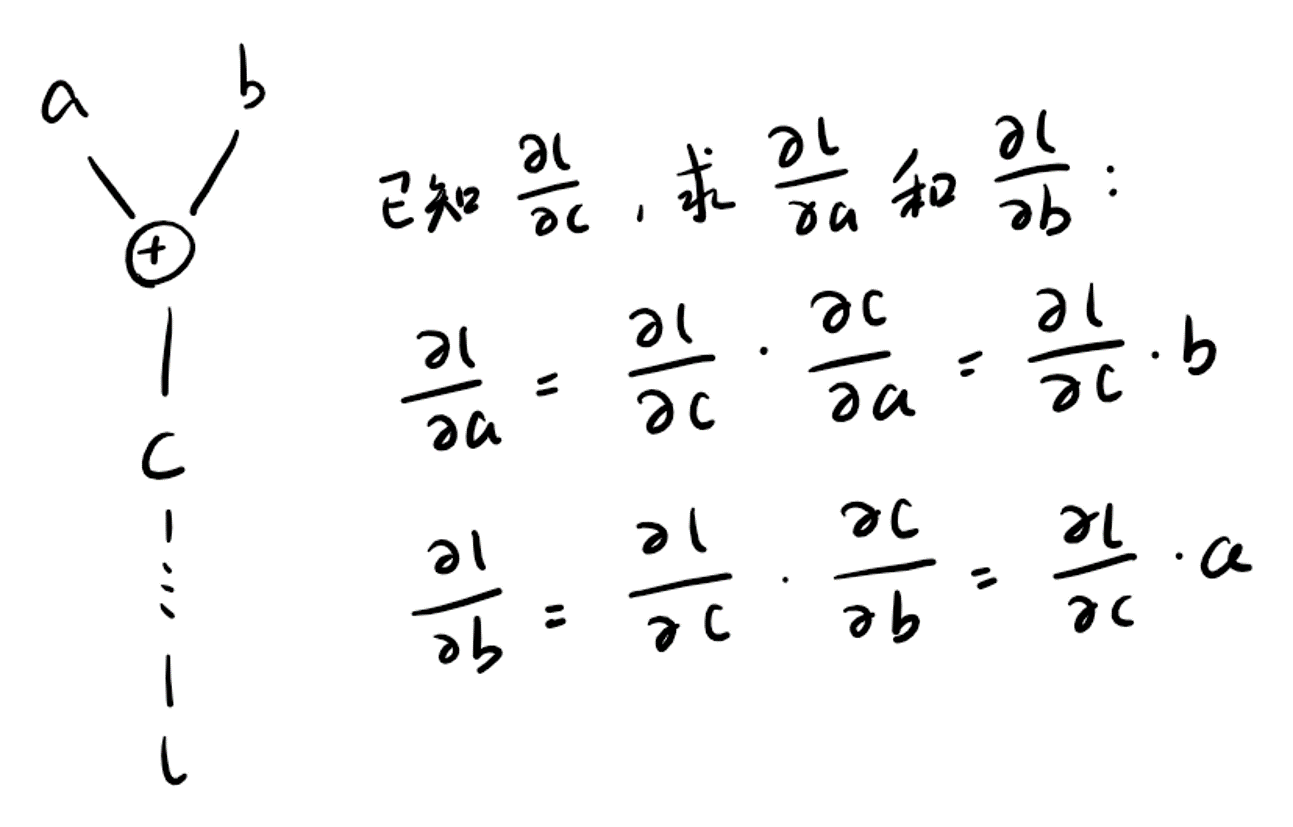 a b
+
C
l
已知 ∂l/∂c , 求 ∂l/∂a 和 ∂l/∂b :
∂l/∂a = ∂l/∂c · ∂c/∂a = ∂l/∂c · b
∂l/∂b = ∂l/∂c · ∂c/∂b = ∂l/∂c · a